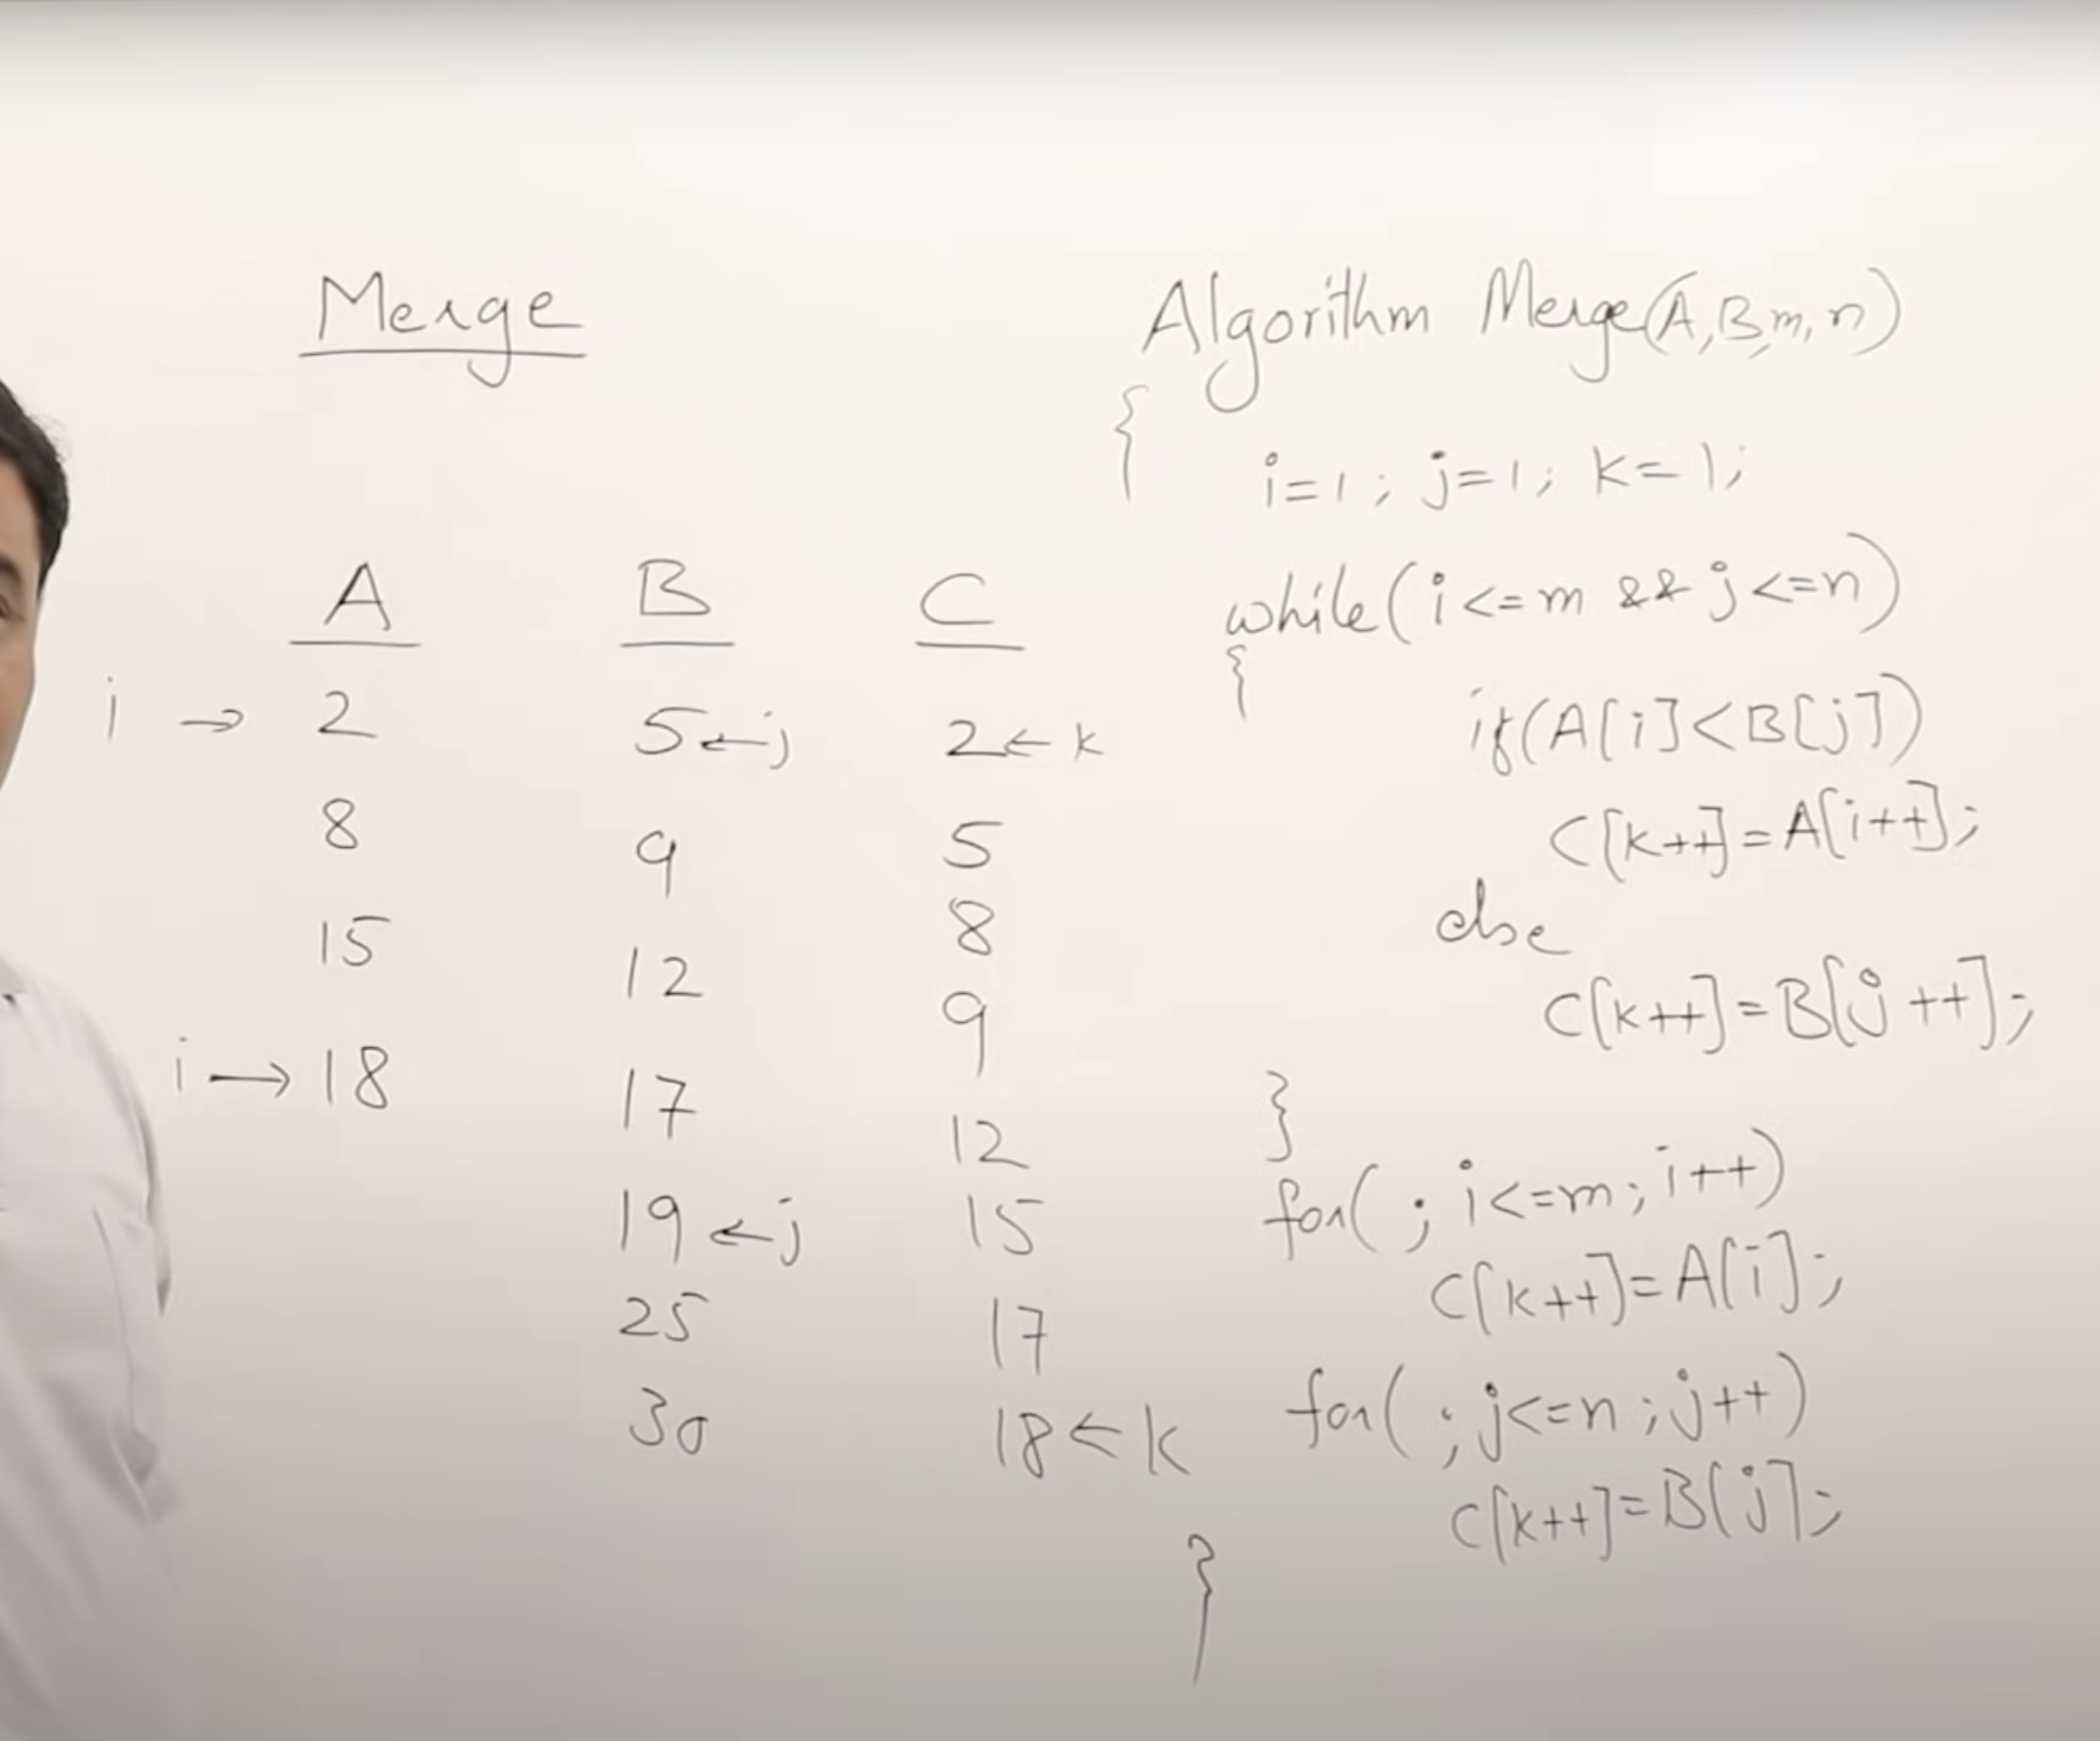 Merge
A B C
i → 2 5 ← j 2 ← k
8 9 5
15 12 8
i → 18 17 9
19 ← j 12
25 15
30 17
18 ← k
Algorithm Merge(A,B,m,n)
{
i=1; j=1; k=1;
while(i<=m && j<=n)
{
if(A[i]<B[j])
C[k++]=A[i++];
else
C[k++]=B[j++];
}
for( ; i<=m; i++)
C[k++]=A[i];
for( ; j<=n; j++)
C[k++]=B[j];
}